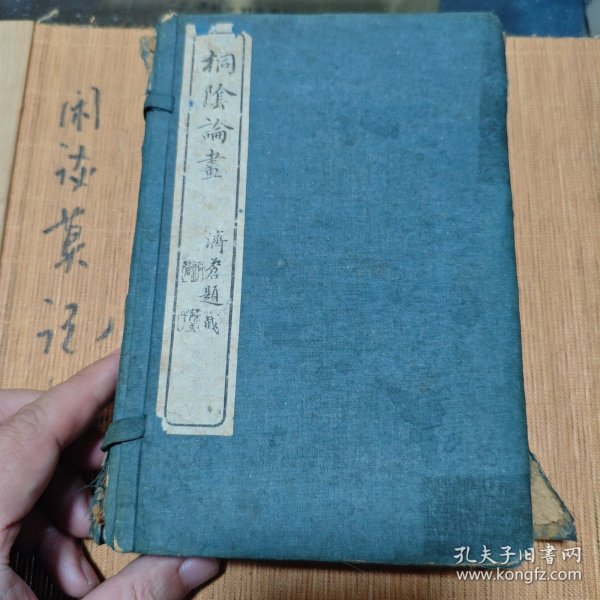 桐陰論畫
濟蒼題籤
闲谈莫
孔夫子旧书网
www.kongfz.com